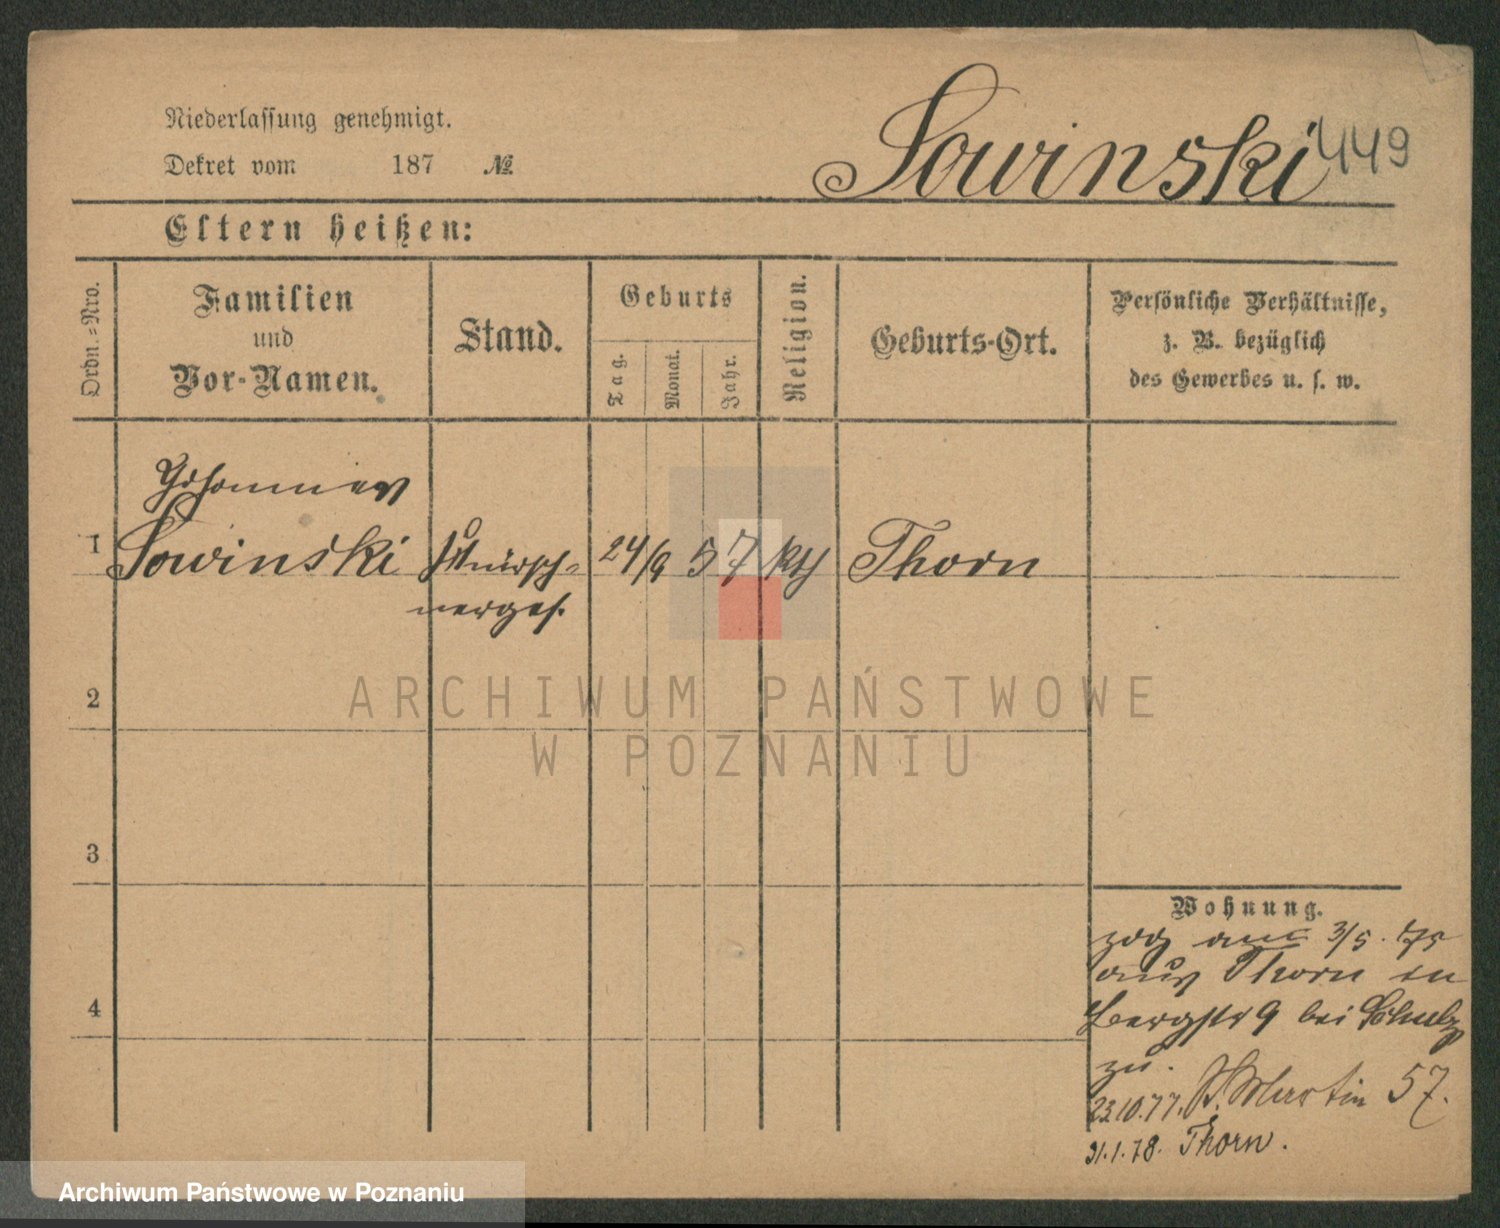 Niederlassung genehmigt.
Dekret vom 187 №
Sowinski 449
Eltern heißen:
Ordn.-Nro.
Familien
und
Vor-Namen.
Stand.
Geburts
Tag.
Monat.
Jahr.
Religion.
Geburts-Ort.
Persönliche Verhältnisse,
z. B. bezüglich
des Gewerbes u. s. w.
Johannes
1 Sowinski Kürsch- 24/9 57 kth Thorn
nerges.
2
3
4
Wohnung.
zog am 3/5. 75
aus Thorn in
Bergstr 9 bei Schulz
zu.
23.10.77. St. Martin 57.
31.1.78. Thorn.
ARCHIWUM PAŃSTWOWE
W POZNANIU
Archiwum Państwowe w Poznaniu